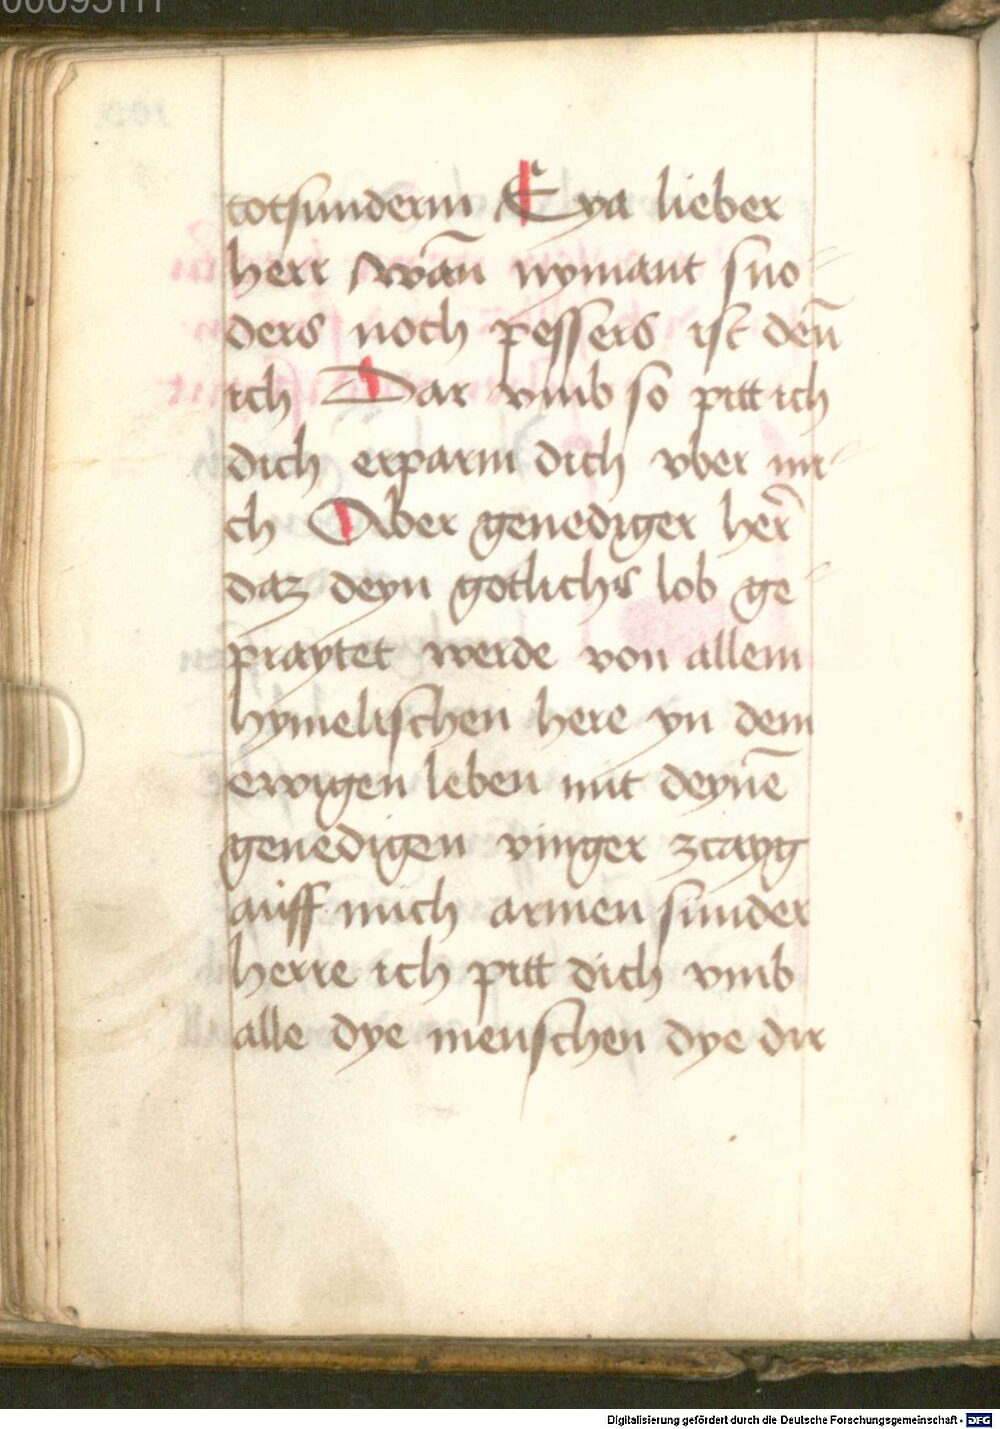 totsunderin Eya lieber
herr wań nymant sno-
ders noch pessers ist deñ
ich Dar vmb so pitt ich
dich erparm dich vber mi-
ch Aber genediger her̃
daz deyn gotlichs lob ge-
praytet werde von allem
hymelischen here yn dem
ewigen leben mit deynē
genedigen vinger zcayg
auff mich armen sunder
herre ich pitt dich vmb
alle dye menschen dye dir
Digitalisierung gefördert durch die Deutsche Forschungsgemeinschaft - DFG